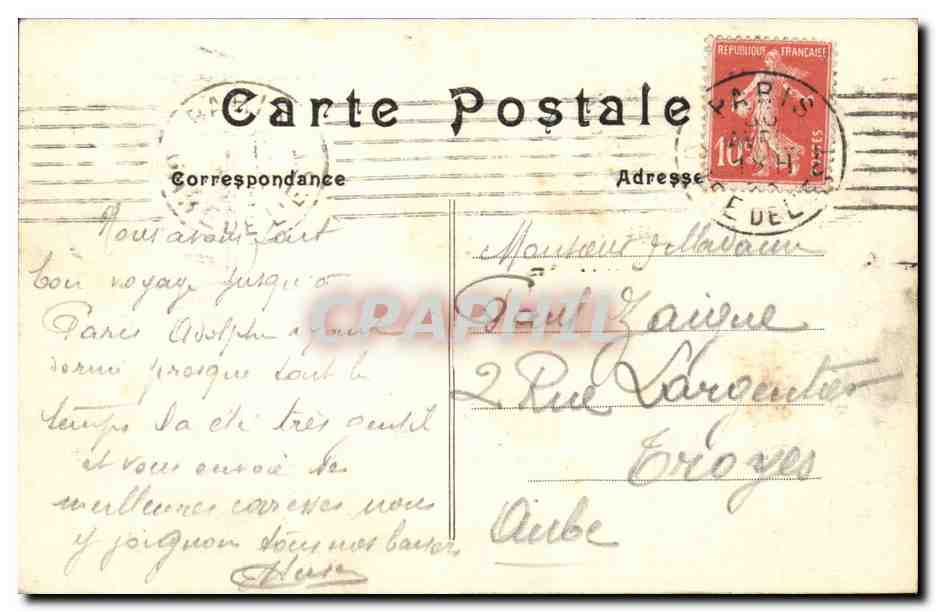 Carte Postale
RÉPUBLIQUE FRANÇAISE
10
POSTES
PARIS
E DEL
Correspondance
Adresse
Nous avons fait
bon voyage jusqu'à
Paris Adolphe ayant
dormi presque tout le
temps Il a été très gentil
et vous envoie ses
meilleures caresses nous
y joignons tous nos baisers
Monsieur & Madame
Paul Zaigue
2 Rue Largentier
Troyes
Aube
CPAPHIL